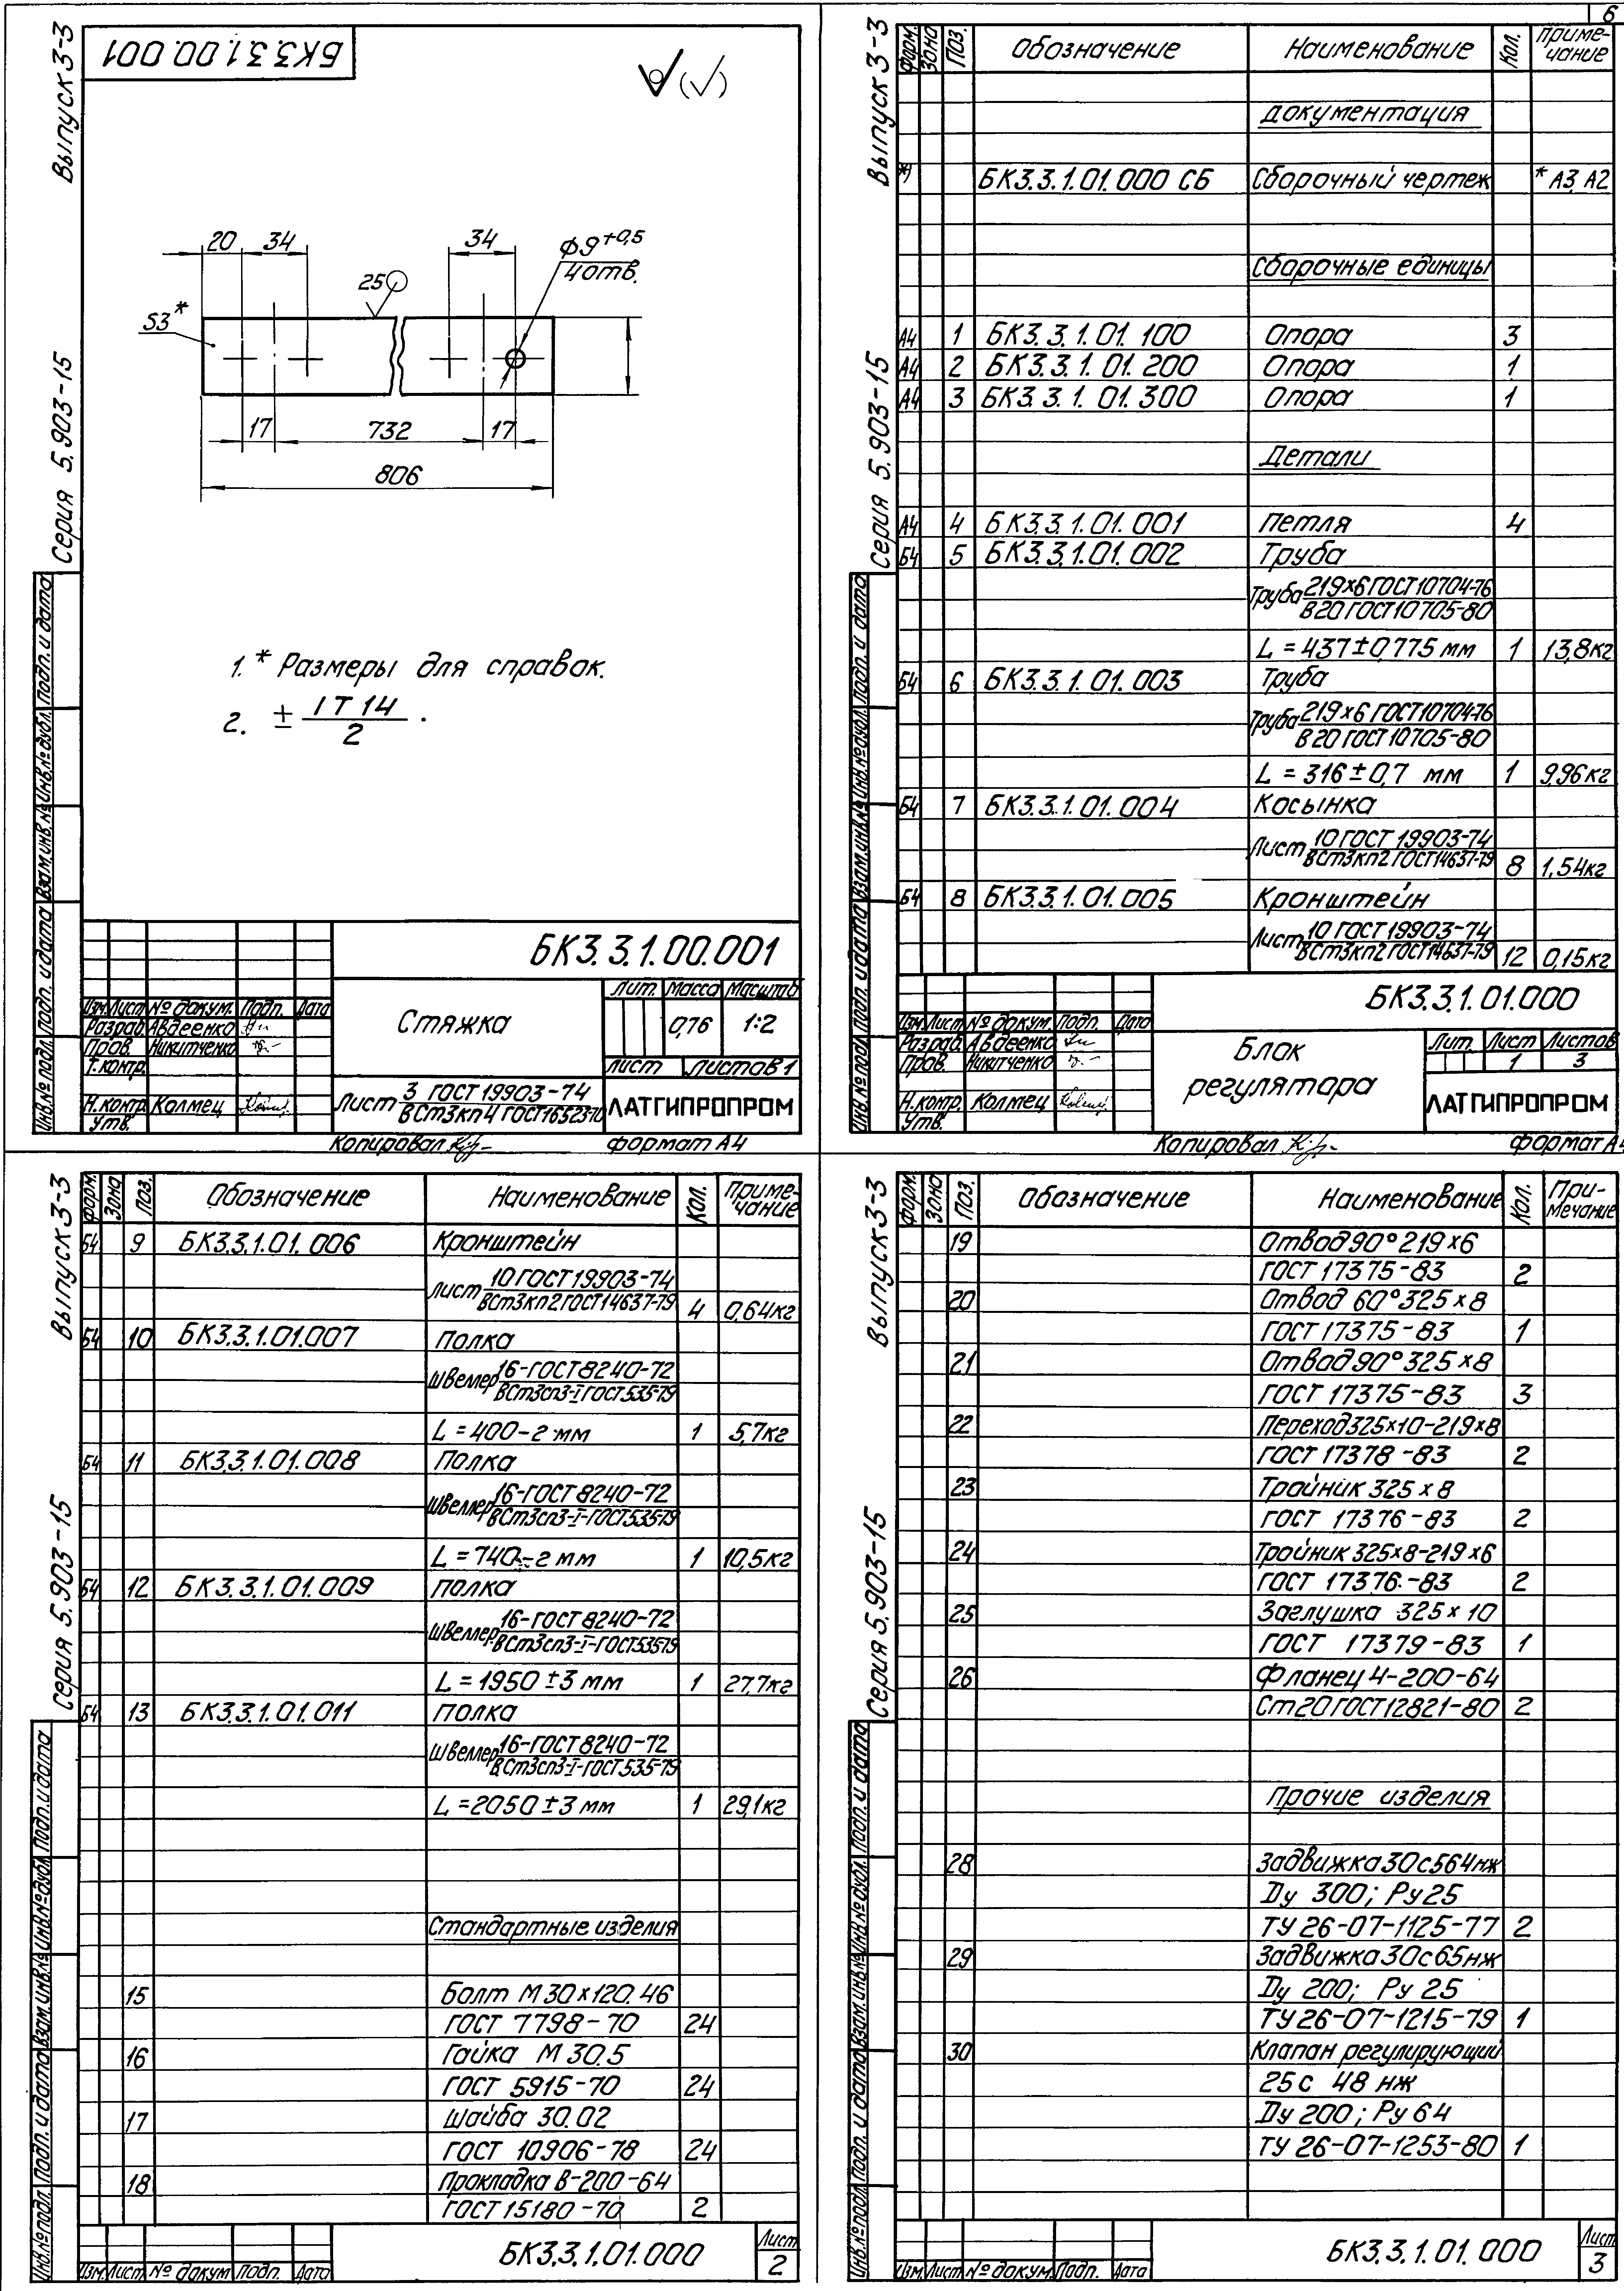 6
Выпуск 3-3
Серия 5.903-15
БК3.3.1.00.001
(√)
20
34
34
φ9+0,5
4 отв.
25
S3*
17
732
17
806
1. * Размеры для справок.
2. ± IT 14 / 2 .
БК3.3.1.00.001
Стяжка
Лит. Масса Масштаб
0,76 1:2
Лист Листов 1
Изм. Лист № докум. Подп. Дата
Разраб. Авдеенко
Пров. Никитченко
Т. контр.
Н. контр. Колмец
Утв.
Лист 3 ГОСТ 19903-74 / ВСт3кп4 ГОСТ 16523-70
ЛАТГИПРОПРОМ
Копировал
формат А4
Инв. № подл. Подп. и дата Взам. инв. № Инв. № дубл. Подп. и дата
Выпуск 3-3
Серия 5.903-15
Форм. Зона Поз. Обозначение Наименование Кол. Примечание
Документация
*) БК3.3.1.01.000 СБ Сборочный чертеж * А3, А2
Сборочные единицы
А4 1 БК3.3.1.01.100 Опора 3
А4 2 БК3.3.1.01.200 Опора 1
А4 3 БК3.3.1.01.300 Опора 1
Детали
А4 4 БК3.3.1.01.001 Петля 4
Б4 5 БК3.3.1.01.002 Труба
Труба 219×6 ГОСТ 10704-76 / В20 ГОСТ 10705-80
L = 437±0,775 мм 1 13,8кг
Б4 6 БК3.3.1.01.003 Труба
Труба 219×6 ГОСТ 10704-76 / В20 ГОСТ 10705-80
L = 316±0,7 мм 1 9,96кг
Б4 7 БК3.3.1.01.004 Косынка
Лист 10 ГОСТ 19903-74 / ВСт3кп2 ГОСТ 14637-79 8 1,54кг
Б4 8 БК3.3.1.01.005 Кронштейн
Лист 10 ГОСТ 19903-74 / ВСт3кп2 ГОСТ 14637-79 12 0,15кг
БК3.3.1.01.000
Изм. Лист № докум. Подп. Дата
Разраб. Авдеенко
Пров. Никитченко
Н. контр. Колмец
Утв.
Блок
регулятора
Лит. Лист Листов
1 3
ЛАТГИПРОПРОМ
Копировал
формат А4
Инв. № подл. Подп. и дата Взам. инв. № Инв. № дубл. Подп. и дата
Выпуск 3-3
Серия 5.903-15
Форм. Зона Поз. Обозначение Наименование Кол. Примечание
Б4 9 БК3.3.1.01.006 Кронштейн
Лист 10 ГОСТ 19903-74 / ВСт3кп2 ГОСТ 14637-79 4 0,64кг
Б4 10 БК3.3.1.01.007 Полка
Швеллер 16-ГОСТ 8240-72 / ВСт3сп3-I ГОСТ 535-79
L = 400-2 мм 1 5,7кг
Б4 11 БК3.3.1.01.008 Полка
Швеллер 16-ГОСТ 8240-72 / ВСт3сп3-I-ГОСТ 535-79
L = 740-2 мм 1 10,5кг
Б4 12 БК3.3.1.01.009 Полка
Швеллер 16-ГОСТ 8240-72 / ВСт3сп3-I-ГОСТ 535-79
L = 1950±3 мм 1 27,7кг
Б4 13 БК3.3.1.01.011 Полка
Швеллер 16-ГОСТ 8240-72 / ВСт3сп3-I-ГОСТ 535-79
L = 2050±3 мм 1 29,1кг
Стандартные изделия
15 Болт М30×120.46
ГОСТ 7798-70 24
16 Гайка М30.5
ГОСТ 5915-70 24
17 Шайба 30.02
ГОСТ 10906-78 24
18 Прокладка В-200-64
ГОСТ 15180-70 2
Изм. Лист № докум. Подп. Дата
БК3.3.1.01.000
Лист
2
Инв. № подл. Подп. и дата Взам. инв. № Инв. № дубл. Подп. и дата
Выпуск 3-3
Серия 5.903-15
Форм. Зона Поз. Обозначение Наименование Кол. Примечание
19 Отвод 90° 219×6
ГОСТ 17375-83 2
20 Отвод 60° 325×8
ГОСТ 17375-83 1
21 Отвод 90° 325×8
ГОСТ 17375-83 3
22 Переход 325×10-219×8
ГОСТ 17378-83 2
23 Тройник 325×8
ГОСТ 17376-83 2
24 Тройник 325×8-219×6
ГОСТ 17376-83 2
25 Заглушка 325×10
ГОСТ 17379-83 1
26 Фланец 4-200-64
Ст20 ГОСТ 12821-80 2
Прочие изделия
28 Задвижка 30с564нж
Ду 300; Ру 25
ТУ 26-07-1125-77 2
29 Задвижка 30с65нж
Ду 200; Ру 25
ТУ 26-07-1215-79 1
30 Клапан регулирующий
25с 48 нж
Ду 200; Ру 64
ТУ 26-07-1253-80 1
Изм. Лист № докум. Подп. Дата
БК3.3.1.01.000
Лист
3
Инв. № подл. Подп. и дата Взам. инв. № Инв. № дубл. Подп. и дата